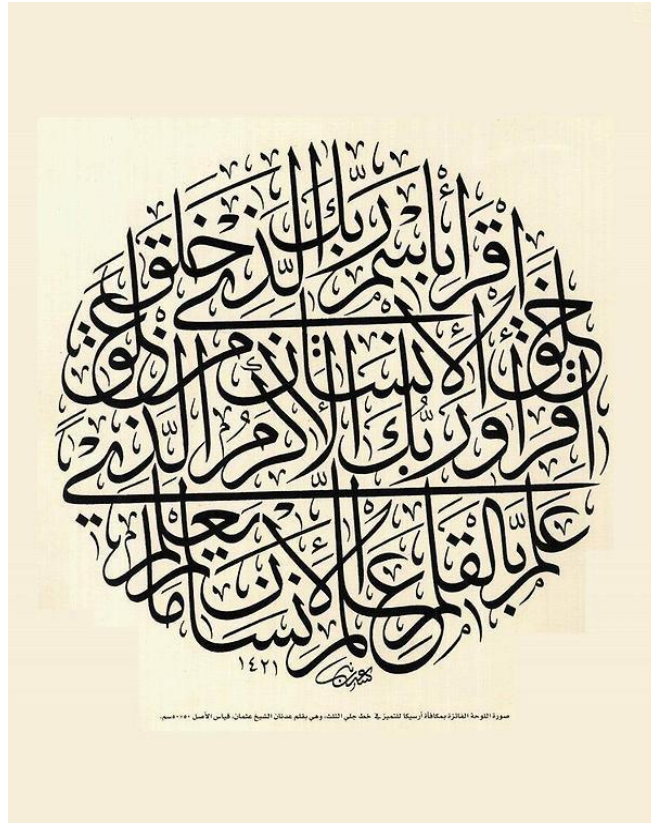 اقرأ باسم ربك الذي خلق
خلق الإنسان من علق
اقرأ وربك الأكرم الذي
علم بالقلم علم الإنسان ما لم يعلم
١٤٢١
صورة اللوحة الفائزة بمكافأة أرسيكا للتميز في خط جلي الثلث، وهي بقلم عدنان الشيخ عثمان، قياس الأصل ٥٠×٥٠سم.